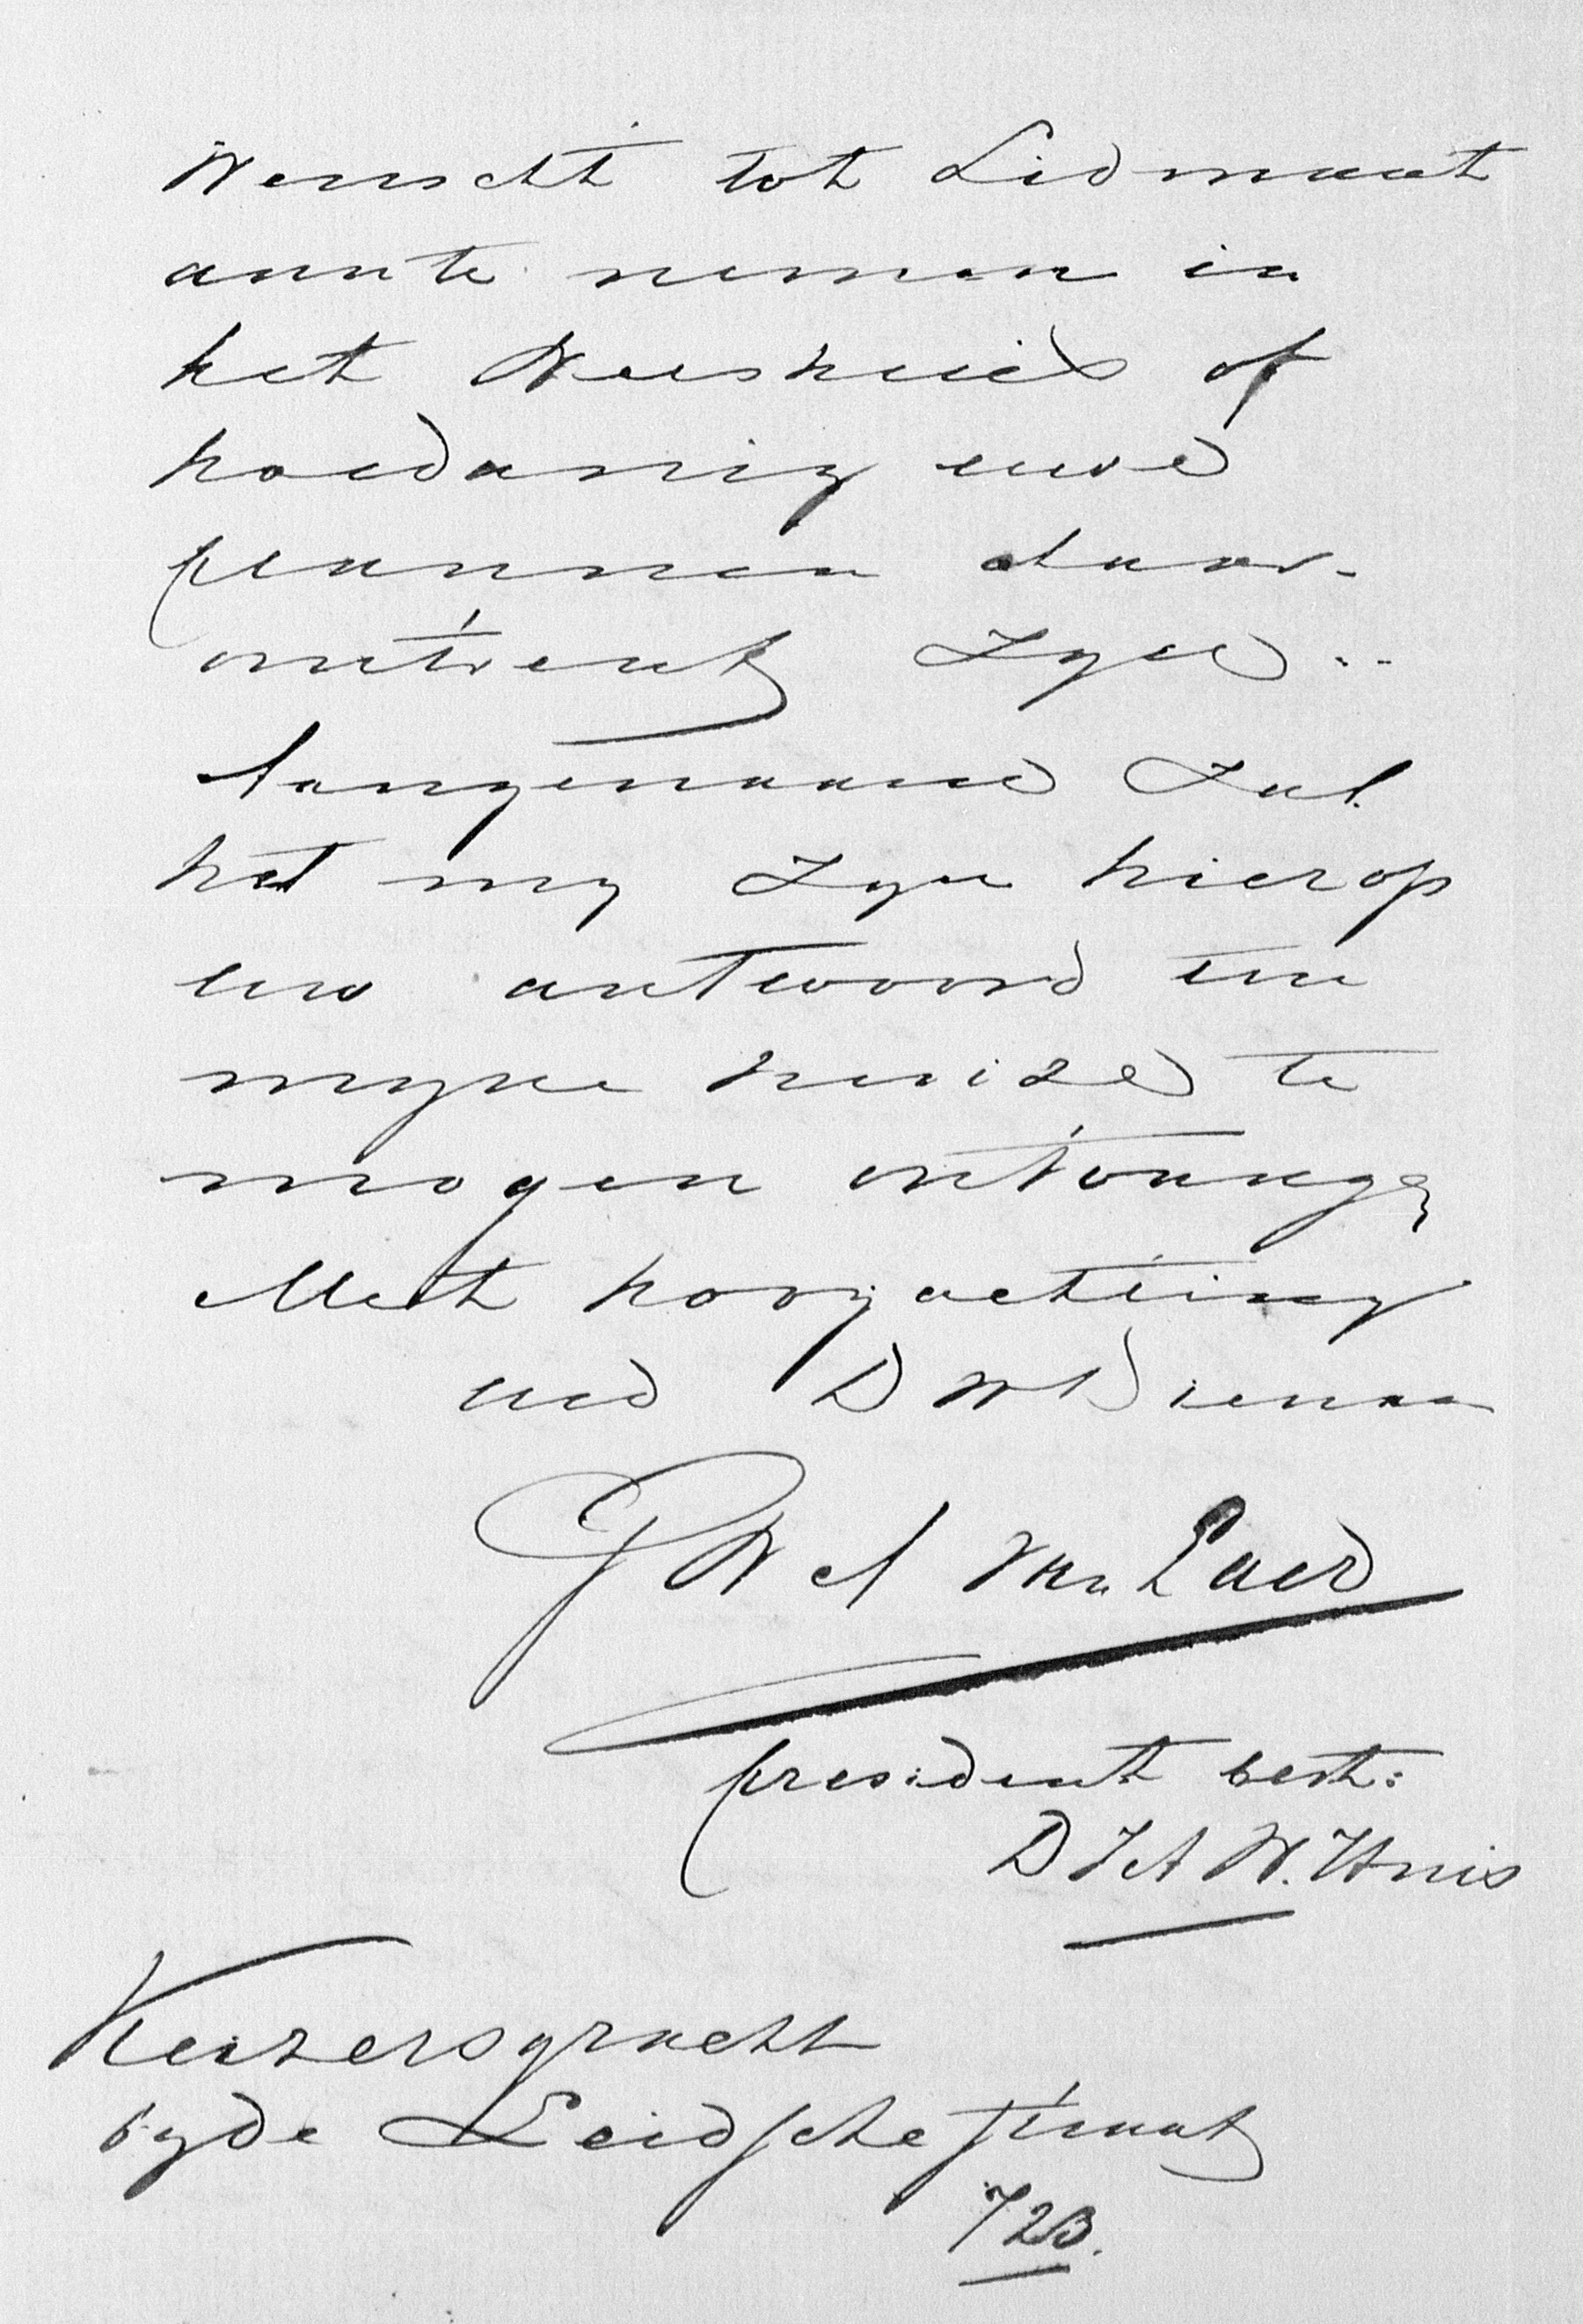 Wenscht tot Lidmaat
aante nemen in
het Weeshuis of
hoedanig uwe
plannen daar-
omtrent Zyn..
Aangenaam Zal
het my Zyn hierop
uw antwoord ten
myne huize te
mogen ontvangen
Met hoogachting
ued D W Dienaar
P W A van Laer
president best:
D J A W. Huis
Keizersgracht
byde Leidschestraat
723.